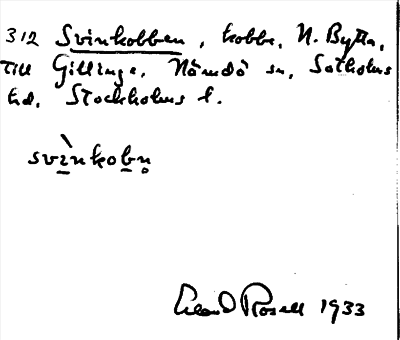 312 Svinkobben, kobbe, N. Bytta,
till Gillinge, Nämdö sn, Sotholms
hd. Stockholms l.
svìnkobn̥
Erland Rosell 1933